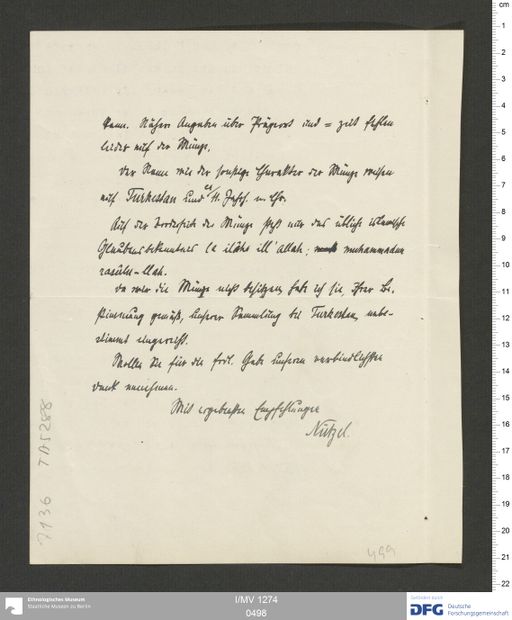 kann. Nähere Angaben über Prägeort und = zeit fehlen
leider auf der Münze.
Der Name wie der sonstige Charakter der Münze weisen
auf Turkestan und 11. Jahrh. n. Chr.
Auf der Vorderseite der Münze steht nur das übliche islamische
Glaubensbekenntnis la ilâha ill' allah, muhammadun
rasûlu-llah.
Da wir die Münze nicht besitzen, habe ich sie, Ihrer Be-
stimmung gemäß, unserer Sammlung bei Turkestan, unbe-
stimmt eingereiht.
Wollen Sie für die frdl. Gabe unseren verbindlichsten
Dank annehmen.
Mit ergebensten Empfehlungen
Nützel.
499
Ethnologisches Museum
Staatliche Museen zu Berlin
I/MV 1274
0498
DFG
Deutsche
Forschungsgemeinschaft
cm
1
2
3
4
5
6
7
8
9
10
11
12
13
14
15
16
17
18
19
20
21
22